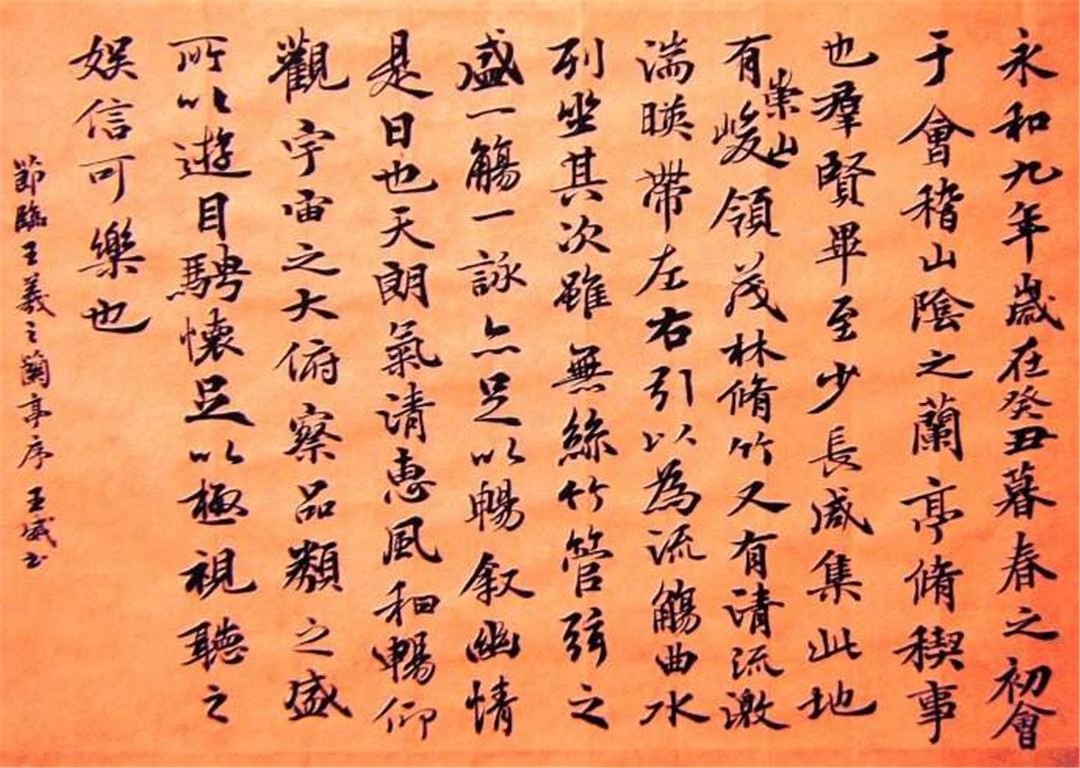 永和九年歲在癸丑暮春之初會
于會稽山陰之蘭亭脩稧事
也羣賢畢至少長咸集此地
有崇山峻領茂林脩竹又有清流激
湍暎帶左右引以為流觴曲水
列坐其次雖無絲竹管弦之
盛一觴一詠亦足以暢叙幽情
是日也天朗氣清惠風和暢仰
觀宇宙之大俯察品類之盛
所以遊目騁懷足以極視聽之
娛信可樂也
節臨王羲之蘭亭序 王威书